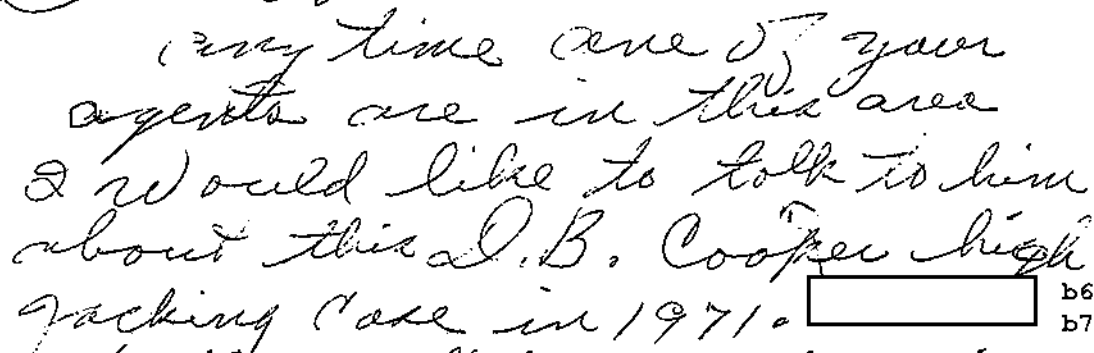 any time one of your
agents are in this area
I would like to talk to him
about this D.B. Cooper high
jacking case in 1971. b6
b7